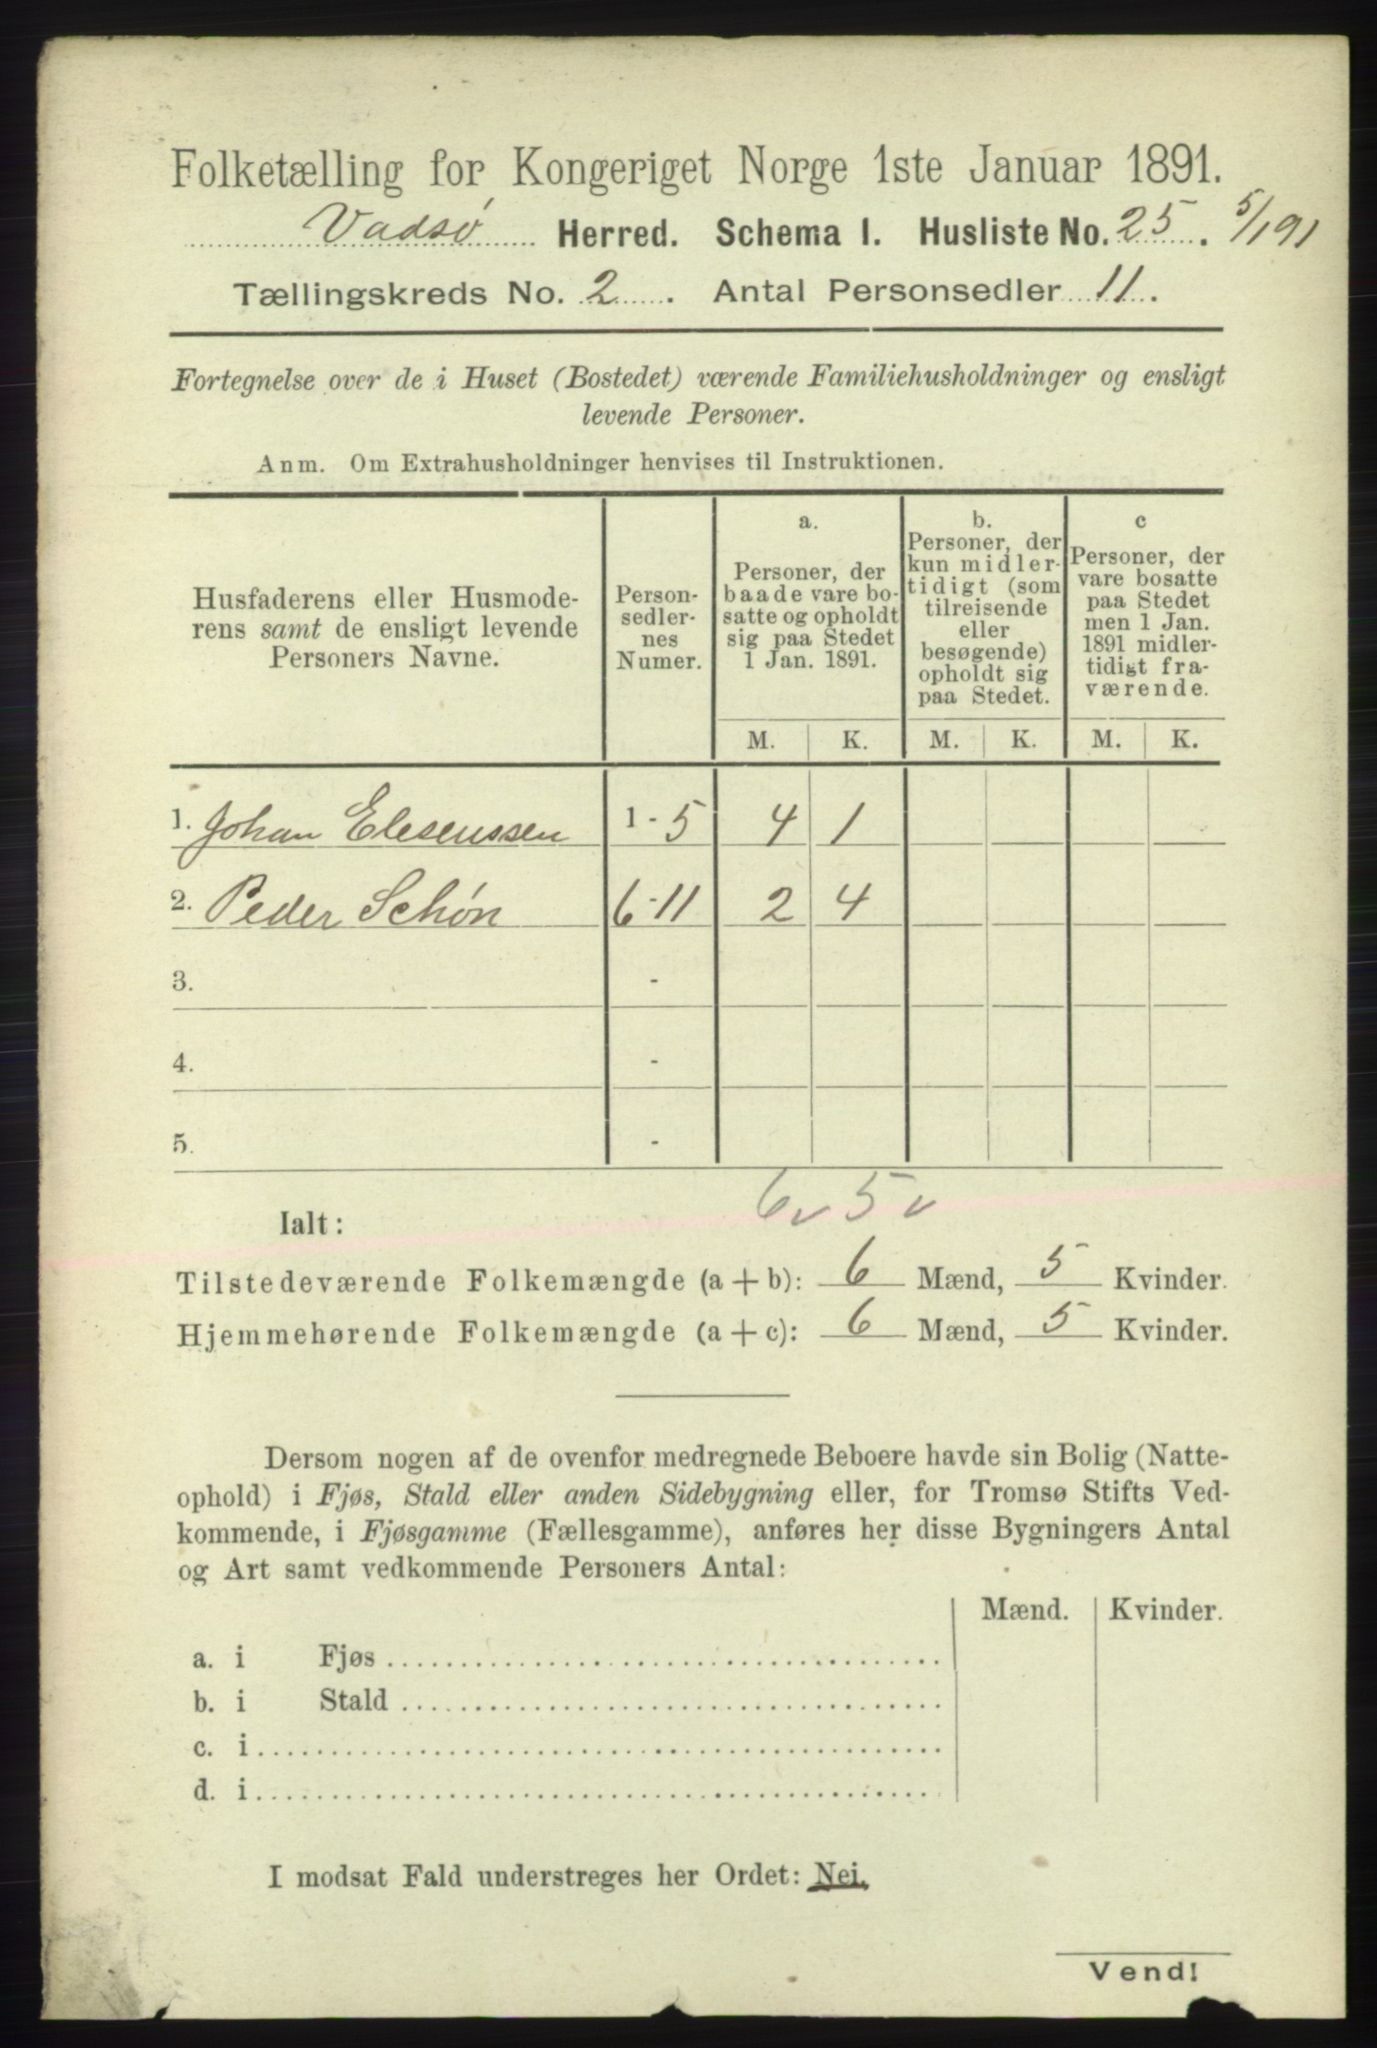 Folketælling for Kongeriget Norge 1ste Januar 1891.
Vadsø Herred. Schema I. Husliste No. 25. 5/1 91
Tællingskreds No. 2. Antal Personsedler 11.
Fortegnelse over de i Huset (Bostedet) værende Familiehusholdninger og ensligt
levende Personer.
Anm. Om Extrahusholdninger henvises til Instruktionen.
Husfaderens eller Husmode-
rens samt de ensligt levende
Personers Navne.
Person-
sedler-
nes
Numer.
a.
Personer, der
baade vare bo-
satte og opholdt
sig paa Stedet
1 Jan. 1891.
b.
Personer, der
kun midler-
tidigt (som
tilreisende
eller
besøgende)
opholdt sig
paa Stedet.
c
Personer, der
vare bosatte
paa Stedet
men 1 Jan.
1891 midler-
tidigt fra-
værende.
M. K. M. K. M. K.
1. Johan Elesenssen 1 - 5 4 1
2. Peder Schøn 6 - 11 2 4
3. -
4. -
5. -
6 v 5 v
Ialt:
Tilstedeværende Folkemængde (a + b): 6 Mænd, 5 Kvinder.
Hjemmehørende Folkemængde (a + c): 6 Mænd, 5 Kvinder.
Dersom nogen af de ovenfor medregnede Beboere havde sin Bolig (Natte-
ophold) i Fjøs, Stald eller anden Sidebygning eller, for Tromsø Stifts Ved-
kommende, i Fjøsgamme (Fællesgamme), anføres her disse Bygningers Antal
og Art samt vedkommende Personers Antal:
Mænd. Kvinder.
a. i Fjøs
b. i Stald
c. i
d. i
I modsat Fald understreges her Ordet: Nei.
Vend!